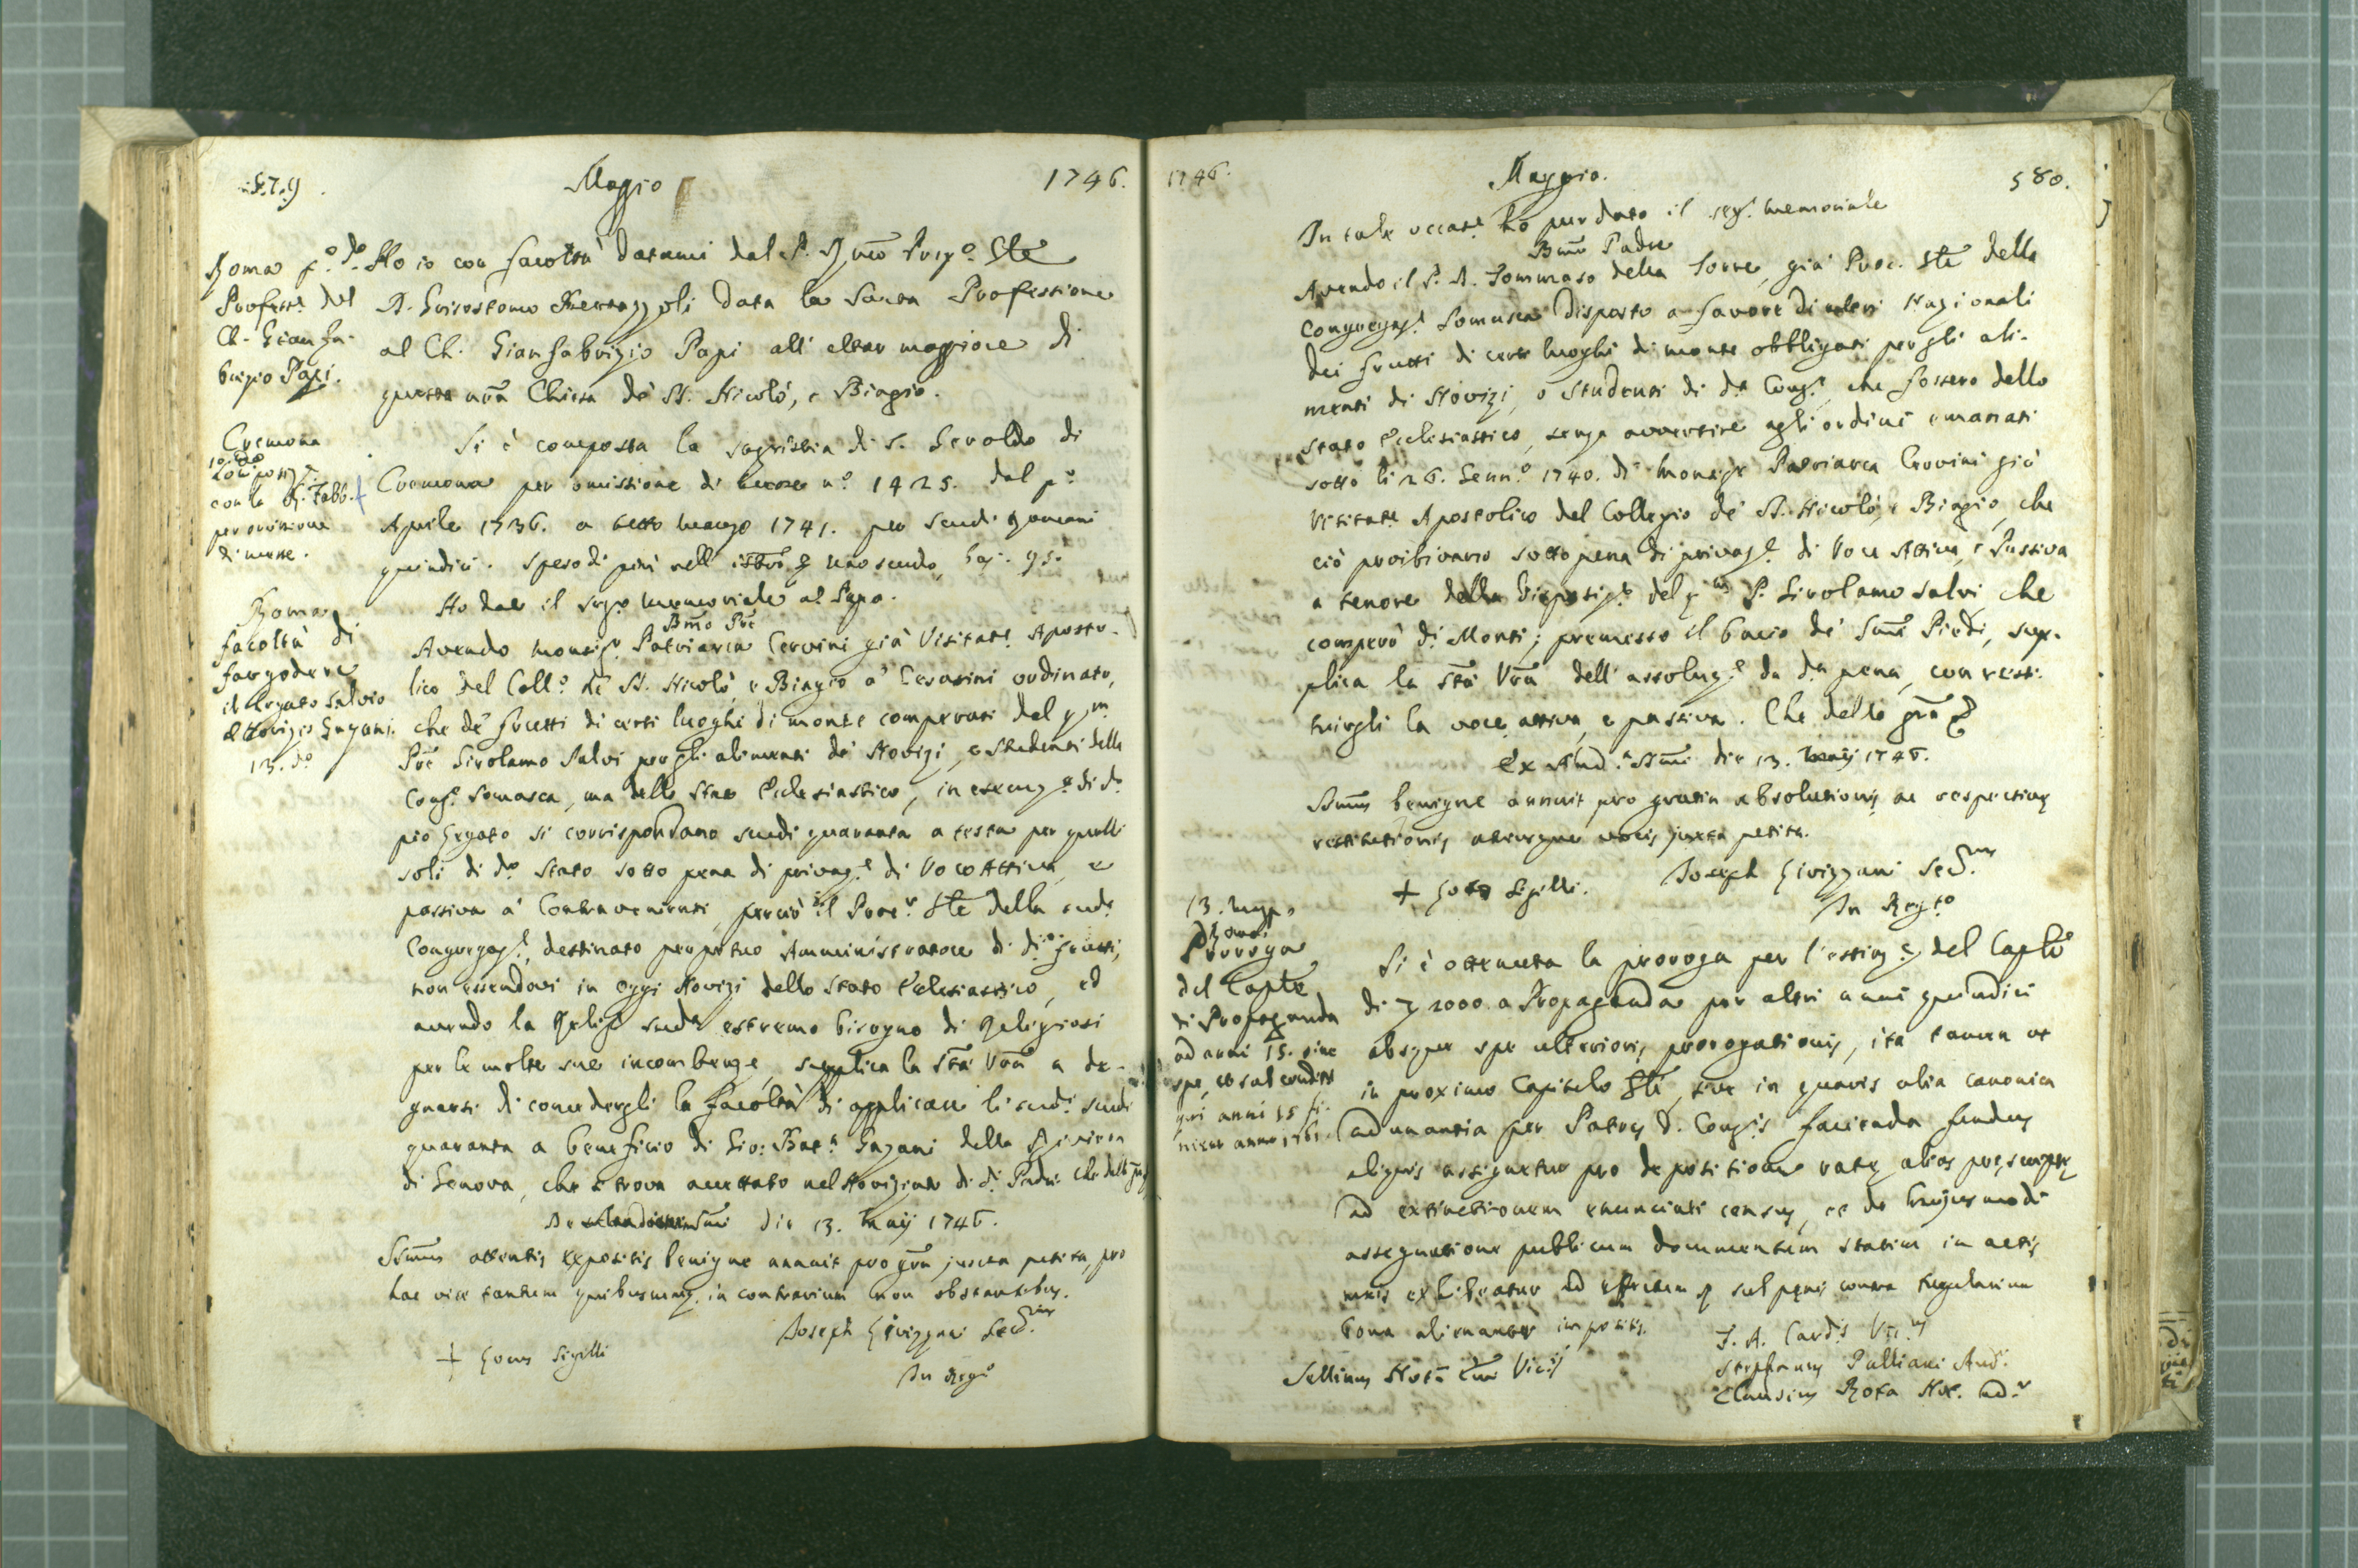 579. Maggio 1746.
Roma p.o d.o
Profess.e del
Ch. Gian fa-
brizio Papi.
Ho io con facoltà datami dal P. Rmo Prep.o Gle
D. Grisostomo Bertazzoli data la Santa Professione
al Ch. Gianfabrizio Papi all' altar maggiore di
questa nra Chiesa de' SS. Nicolò, e Biagio.
Cremona
con la R. Fabb.
per omissione
di messe.
Si è composta la sagristia di S. Geroldo di
Cremona per omissione di messe n.o 1425. dal p.o
Aprile 1736. a tutto marzo 1741. per scudi romani
quindici. Speso di più nell' uno scudo, baj. 95.
Roma
facoltà di
far godere
il legato Salvio
al Novizio Gazani.
13. d.o
Ho dato il seg.e memoriale al Papa.
Bmo Pre
Avendo monsig.r Patriarca Cervini già Visitat.e Aposto-
lico del Coll.o de' SS. Nicolò, e Biagio a' Cesarini ordinato,
che de' frutti di certi luoghi di monte comperati dal qm
Pre Girolamo Salvi per gli alimenti de' Novizi, e Studenti della
Cong.e Somasca, ma dello Stato Ecclesiastico, in esecuz.e di d.o
pio legato si corrispondano scudi quaranta a testa per quelli
soli di d.o Stato sotto pena di privaz.e di Voce Attiva, e
passiva a' Contravenienti, perciò il Proc.r Gle della sud.a
Congregaz.e, destinato perpetuo Amministratore di d.i frutti,
non essendovi in oggi Novizi dello Stato Ecclesiastico, ed
avendo la Relig.e sud.a estremo bisogno di Religiosi
per le molte sue incombenze, supplica la Stà Vra a de-
gnarsi di concedergli la facoltà di applicare li sud.i scudi
quaranta a beneficio di Gio: Batt.a Gazani della Riviera
di Genova, che si trova accettato nel Noviziato di d.i Padri. Che della gra
die 13. Maij 1746.
Ssmus attentis expositis benigne annuit pro gra juxta petita, pro
hac vice tantum quibuscumq. in contrarium non obstantibus.
Joseph Livizzani Sec.rius
+ Locus Sigilli
In Reg.o
1746. Maggio. 580.
In tale occas.e ho pur dato il seg.e memoriale
Bmo Padre
Avendo il P. D. Tommaso della Torre, già Proc. Gle della
Congregaz.e Somasca disposto a favore di altri Nazionali
dei frutti di certi luoghi di monte obbligati per gli ali-
menti di Novizi, o Studenti di d.a Cong.e, che fossero dello
Stato Ecclesiastico, senza avvertire agli ordini emanati
sotto li 26. Genn.o 1740. di Monsig.r Patriarca Crovini già
Visitat.e Apostolico del Collegio de' SS. Nicolò, e Biagio, che
ciò proibivano sotto pena di privaz.e di Voce Attiva, e Passiva
a tenore della disposiz.e del qm P. Girolamo Salvi che
comperò di Monti; premesso il bacio de' Smi Piedi, sup-
plica la Stà Vra dell' assoluz.e da d.a pena, con resti-
tuirgli la voce attiva, e passiva. Che della gra
Ex Aud.a SSmi die 13. Maij 1746.
Ssmus benigne annuit pro gratia absolutionis, ac respectivae
restitutionis utriusque vocis juxta petita.
Joseph Livizzani Sec.rius
+ Loco Sigilli.
In Reg.to
13. Magg.o
Roma.
Proroga
del Caple
di Propaganda
ad anni 15. sine
spe, et sub condit
qui anni 15 fi-
nient anno 1761.
Si è ottenuta la proroga per l'estinz.e del Caple
di 2000. a Propaganda per altri anni quindici
absque spe ulterioris prorogationis, ita tamen ut
in proximo Capitulo Gli, sive in quavis alia canonica
adunantia per Patres d. Cong.is facienda fundus
aliquis assignetur pro depositione ratae alias praescriptae
ad extinctionem enunciati census, et de hujusmodi
assegnatione publicum documentum statim in actis
meis exhibeatur ad effectum sub penis contra Regularium
bona alienantes impositis.
J. A. Card.s Vic.us
Stephanus Pulliani Aud.
Claudius Rota Not.
Sellinus Not. Vic.ij